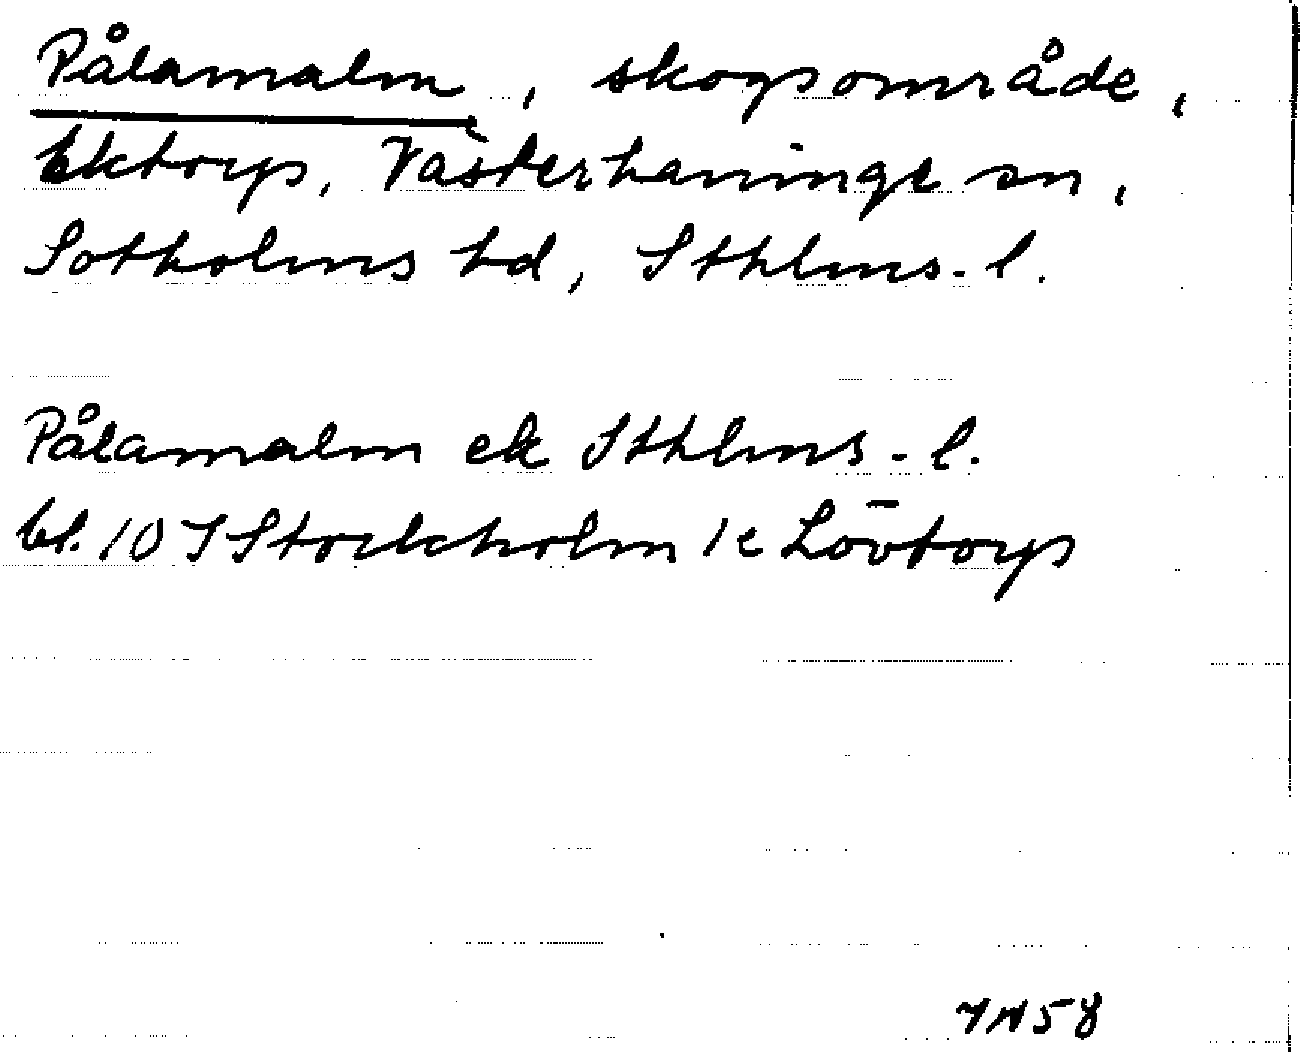 Pålamalm, skogsområde,
Ektorp, Västerhaninge sn,
Sotholms hd, Sthlms-l.
Pålamalm ek Sthlms-l.
bl. 10 I Stockholm 1c Lövtorp